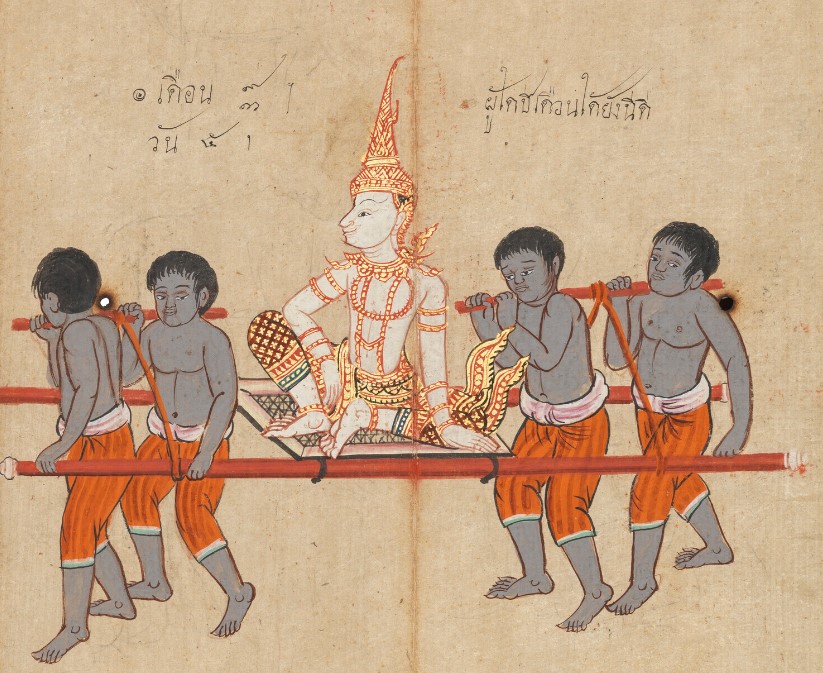 ๑ เดือน ๓
วัน ๕
ผู้ใดปีเดือนใดยังนี้ดี